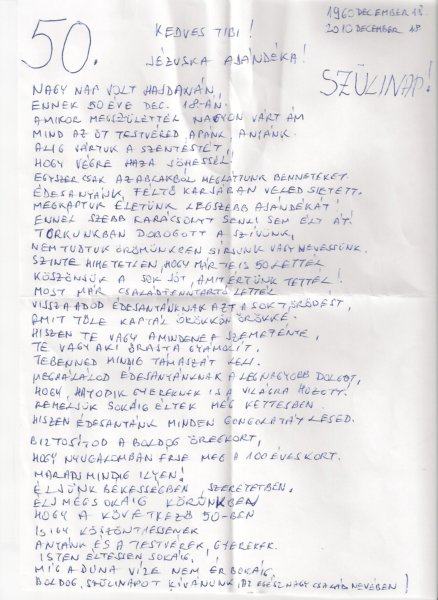 50.
KEDVES TIBI!
1960 DECEMBER 18.
2010 DECEMBER 18.
JÉZUSKA AJÁNDÉKA!
SZÜLINAP!
NAGY NAP VOLT HAJDANÁN,
ENNEK 50 ÉVE DEC. 18-ÁN.
AMIKOR MEGSZÜLETTÉL NAGYON VÁRT ÁM
MIND AZ ÖT TESTVÉRED, APÁNK, ANYÁNK.
ALIG VÁRTUK A SZENTESTÉT,
HOGY VÉGRE HAZA JÖHESSÉL.
EGYSZER CSAK AZ ABLAKBÓL MEGLÁTTUNK BENNETEKET.
ÉDESANYÁNK, FÉLTŐ KARJÁBAN VELED SIETETT.
MEGKAPTUK ÉLETÜNK LEGSZEBB AJÁNDÉKÁT!
ENNÉL SZEBB KARÁCSONYT SENKI SEM ÉLT ÁT!
TORKUNKBAN DOBOGOTT A SZÍVÜNK,
NEM TUDTUK ÖRÖMÜNKBEN SÍRJUNK VAGY NEVESSÜNK.
SZINTE HIHETETLEN, HOGY MÁR TE IS 50 LETTÉL
KÖSZÖNJÜK A SOK JÓT, AMIT ÉRTÜNK TETTÉL!
MOST MÁR CSALÁDFENNTARTÓ LETTÉL
VISSZA ADOD ÉDESANYÁNKNAK AZT A SOK TÖRŐDÉST,
AMIT TŐLE KAPTÁL ÖRÖKKÖN ÖRÖKKÉ.
HISZEN TE VAGY A MINDENE A SZEMEFÉNYE,
TE VAGY AKI GYÁMOLÍT,
TEBENNED MINDIG TÁMASZÁT LELI.
MEGHÁLÁLOD ÉDESANYÁNKNAK A LEGNAGYOBB DOLGOT,
HOGY, HATODIK GYEREKNEK IS A VILÁGRA HOZOTT.
REMÉLJÜK SOKÁIG ÉLTEK MÉG KETTESBEN.
HISZEN ÉDESANYÁNK MINDEN GONDOLATÁT LESED.
BIZTOSÍTOD A BOLDOG ÖREGKORT,
HOGY NYUGALOMBAN ÉRJE MEG A 100 ÉVES KORT.
MARADJ MINDIG ILYEN!
ÉLJÜNK BÉKESSÉGBEN SZERETETBEN,
ÉLJ MÉG SOKÁIG KÖRÜNKBEN
HOGY A KÖVETKEZŐ 50-BEN
IS ÍGY KÖSZÖNTHESSENEK
ANYÁNK ÉS A TESTVÉREK, GYEREKEK.
ISTEN ÉLTESSEN SOKÁIG,
MÍG A DUNA VIZE NEM ÉR BOKÁIG,
BOLDOG, SZÜLINAPOT KÍVÁNUNK, AZ EGÉSZ NAGY CSALÁD NEVÉBEN!